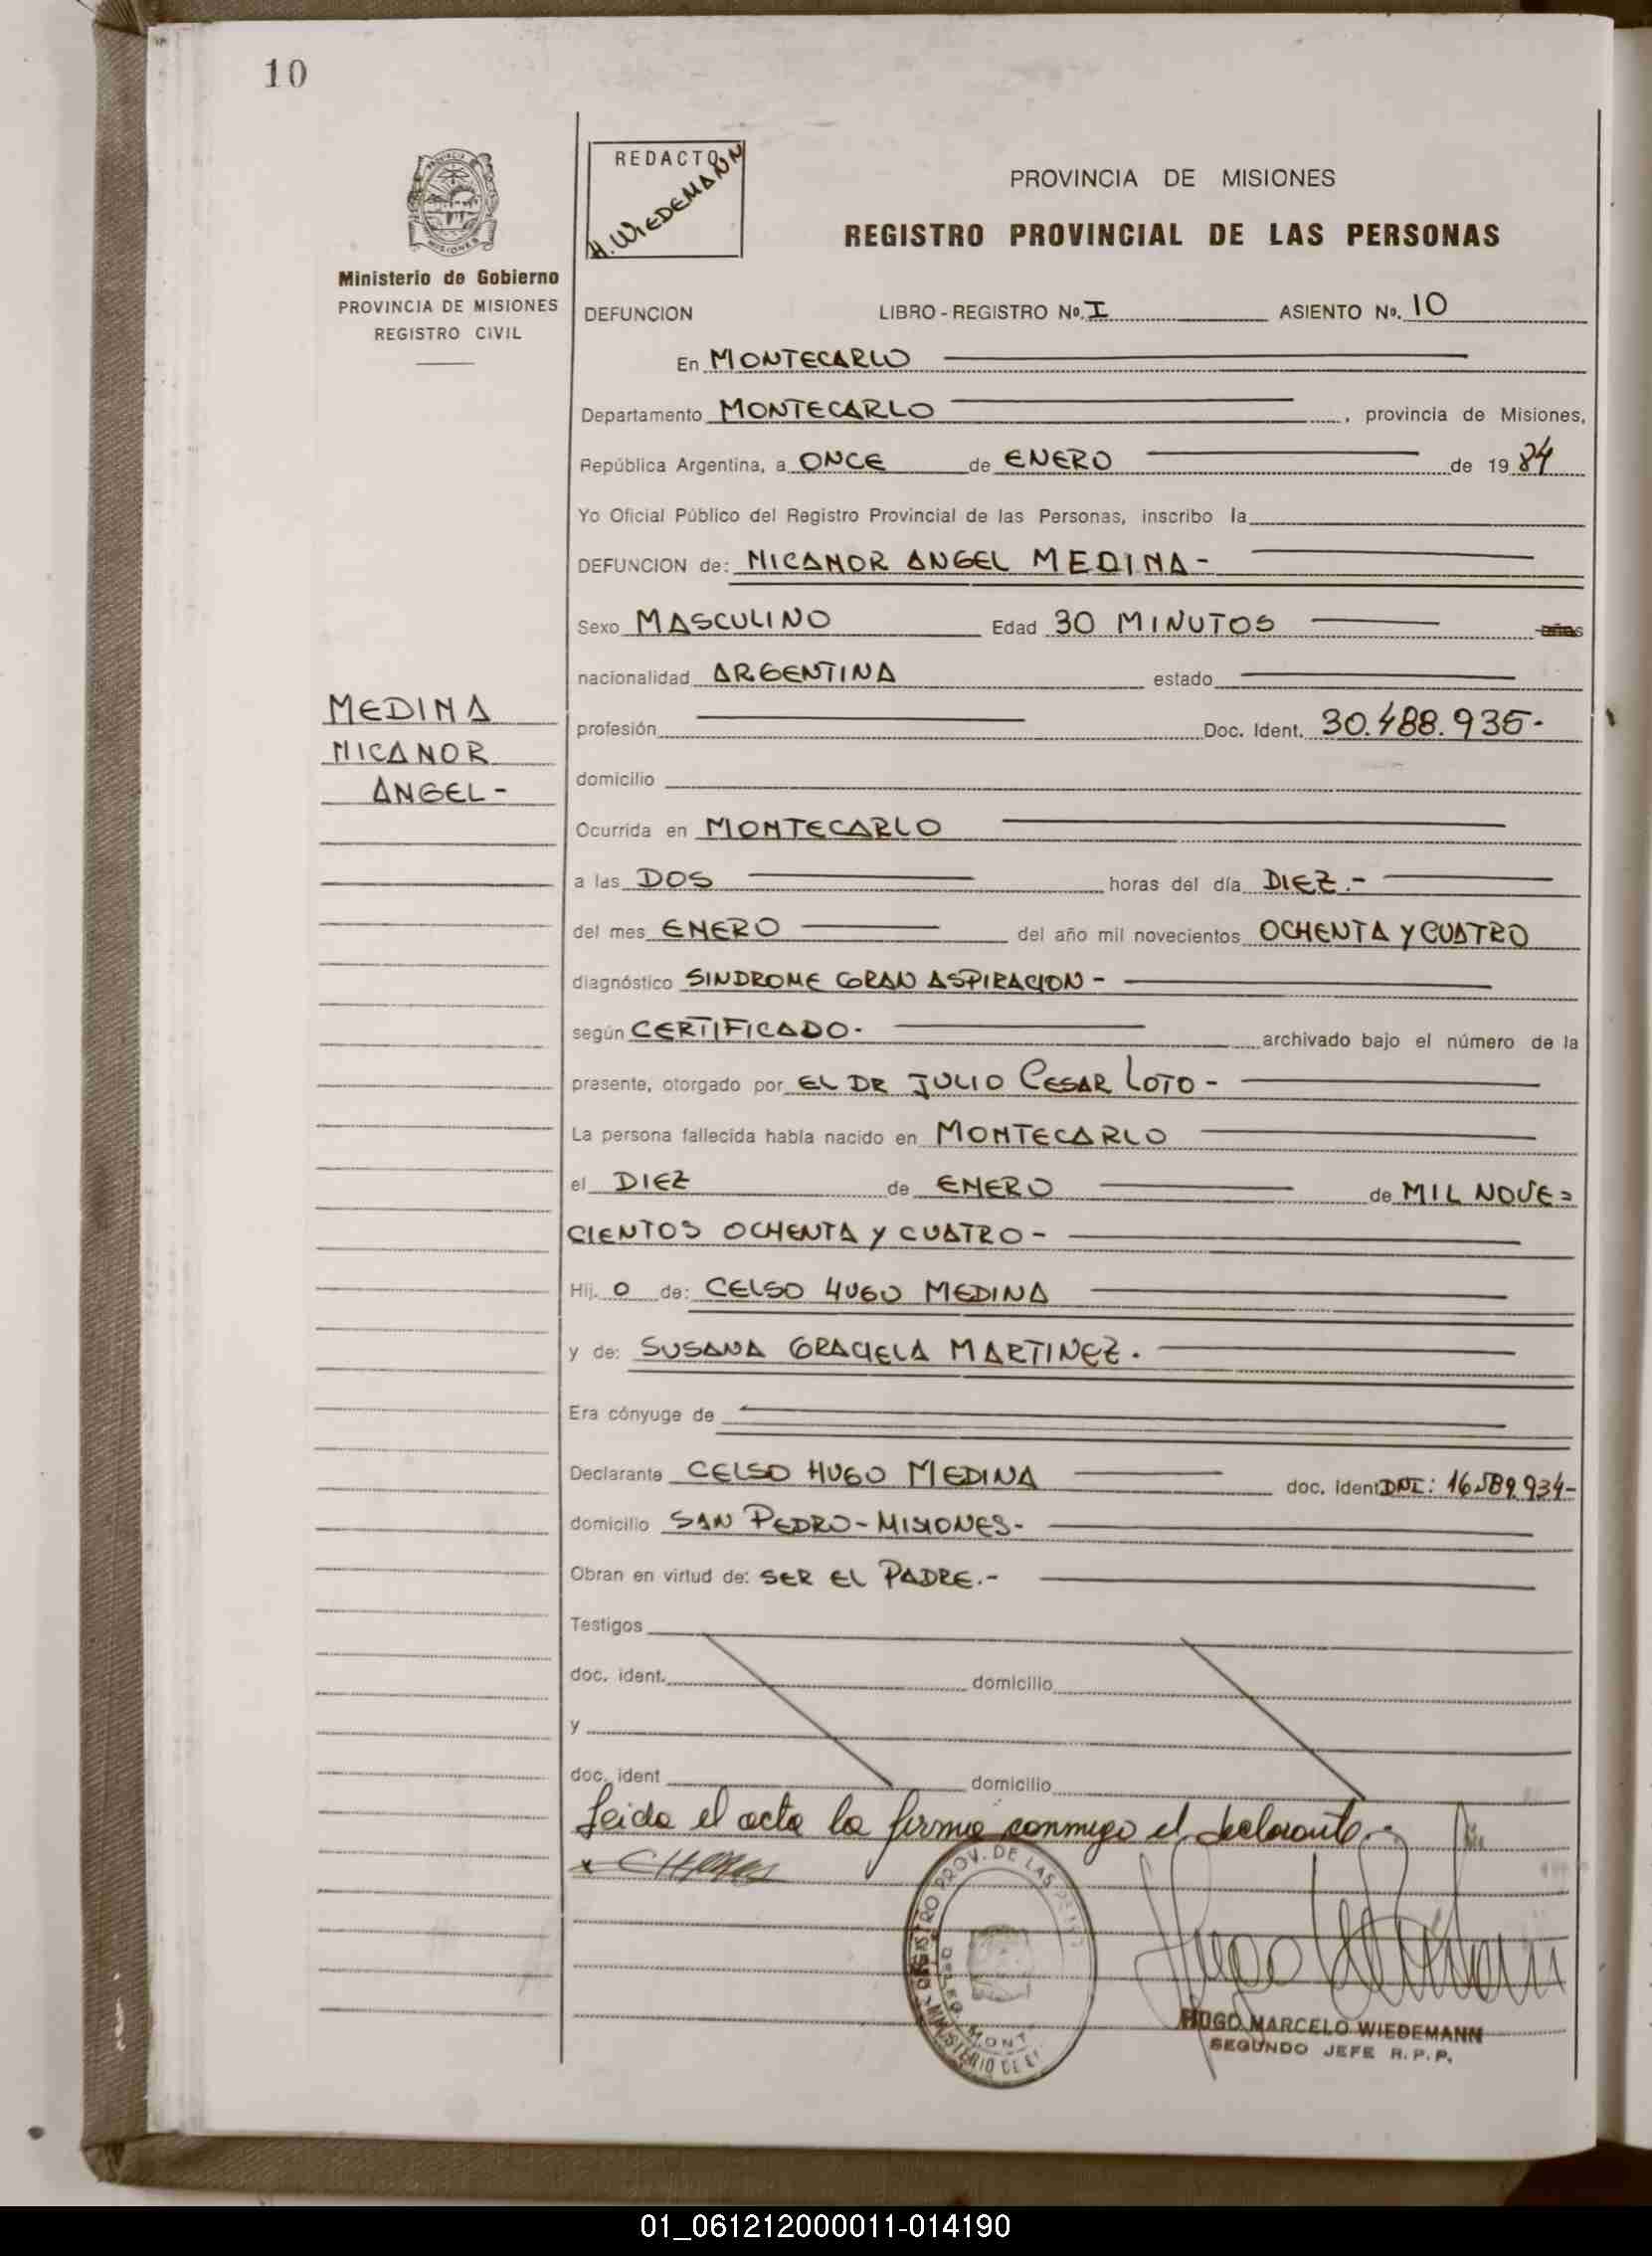 10
Ministerio de Gobierno
PROVINCIA DE MISIONES
REGISTRO CIVIL
MEDINA
NICANOR
ANGEL-
REDACTO
H. WIEDEMANN
PROVINCIA DE MISIONES
REGISTRO PROVINCIAL DE LAS PERSONAS
DEFUNCION LIBRO-REGISTRO No. I ASIENTO No. 10
En MONTECARLO
Departamento MONTECARLO, provincia de Misiones,
República Argentina, a ONCE de ENERO de 1984
Yo Oficial Público del Registro Provincial de las Personas, inscribo la
DEFUNCION de: NICANOR ANGEL MEDINA-
Sexo MASCULINO Edad 30 MINUTOS años
nacionalidad ARGENTINA estado
profesión Doc. Ident. 30.488.935-
domicilio
Ocurrida en MONTECARLO
a las DOS horas del día DIEZ.-
del mes ENERO del año mil novecientos OCHENTA Y CUATRO
diagnóstico SINDROME GRAN ASPIRACION-
según CERTIFICADO- archivado bajo el número de la
presente, otorgado por EL DR JULIO CESAR LOTO-
La persona fallecida había nacido en MONTECARLO
el DIEZ de ENERO de MIL NOVE=
CIENTOS OCHENTA Y CUATRO-
Hij. O de: CELSO HUGO MEDINA
y de: SUSANA GRACIELA MARTINEZ.
Era cónyuge de
Declarante CELSO HUGO MEDINA doc. ident DNI: 16.589.934-
domicilio SAN PEDRO-MISIONES-
Obran en virtud de: SER EL PADRE.-
Testigos
doc. ident. domicilio
y
doc. ident domicilio
Leida el acta la firma conmigo el declarante.-
REGISTRO PROV. DE LAS
MINISTERIO DE
DELEG. MONT
HUGO MARCELO WIEDEMANN
SEGUNDO JEFE R.P.P.
01_061212000011-014190